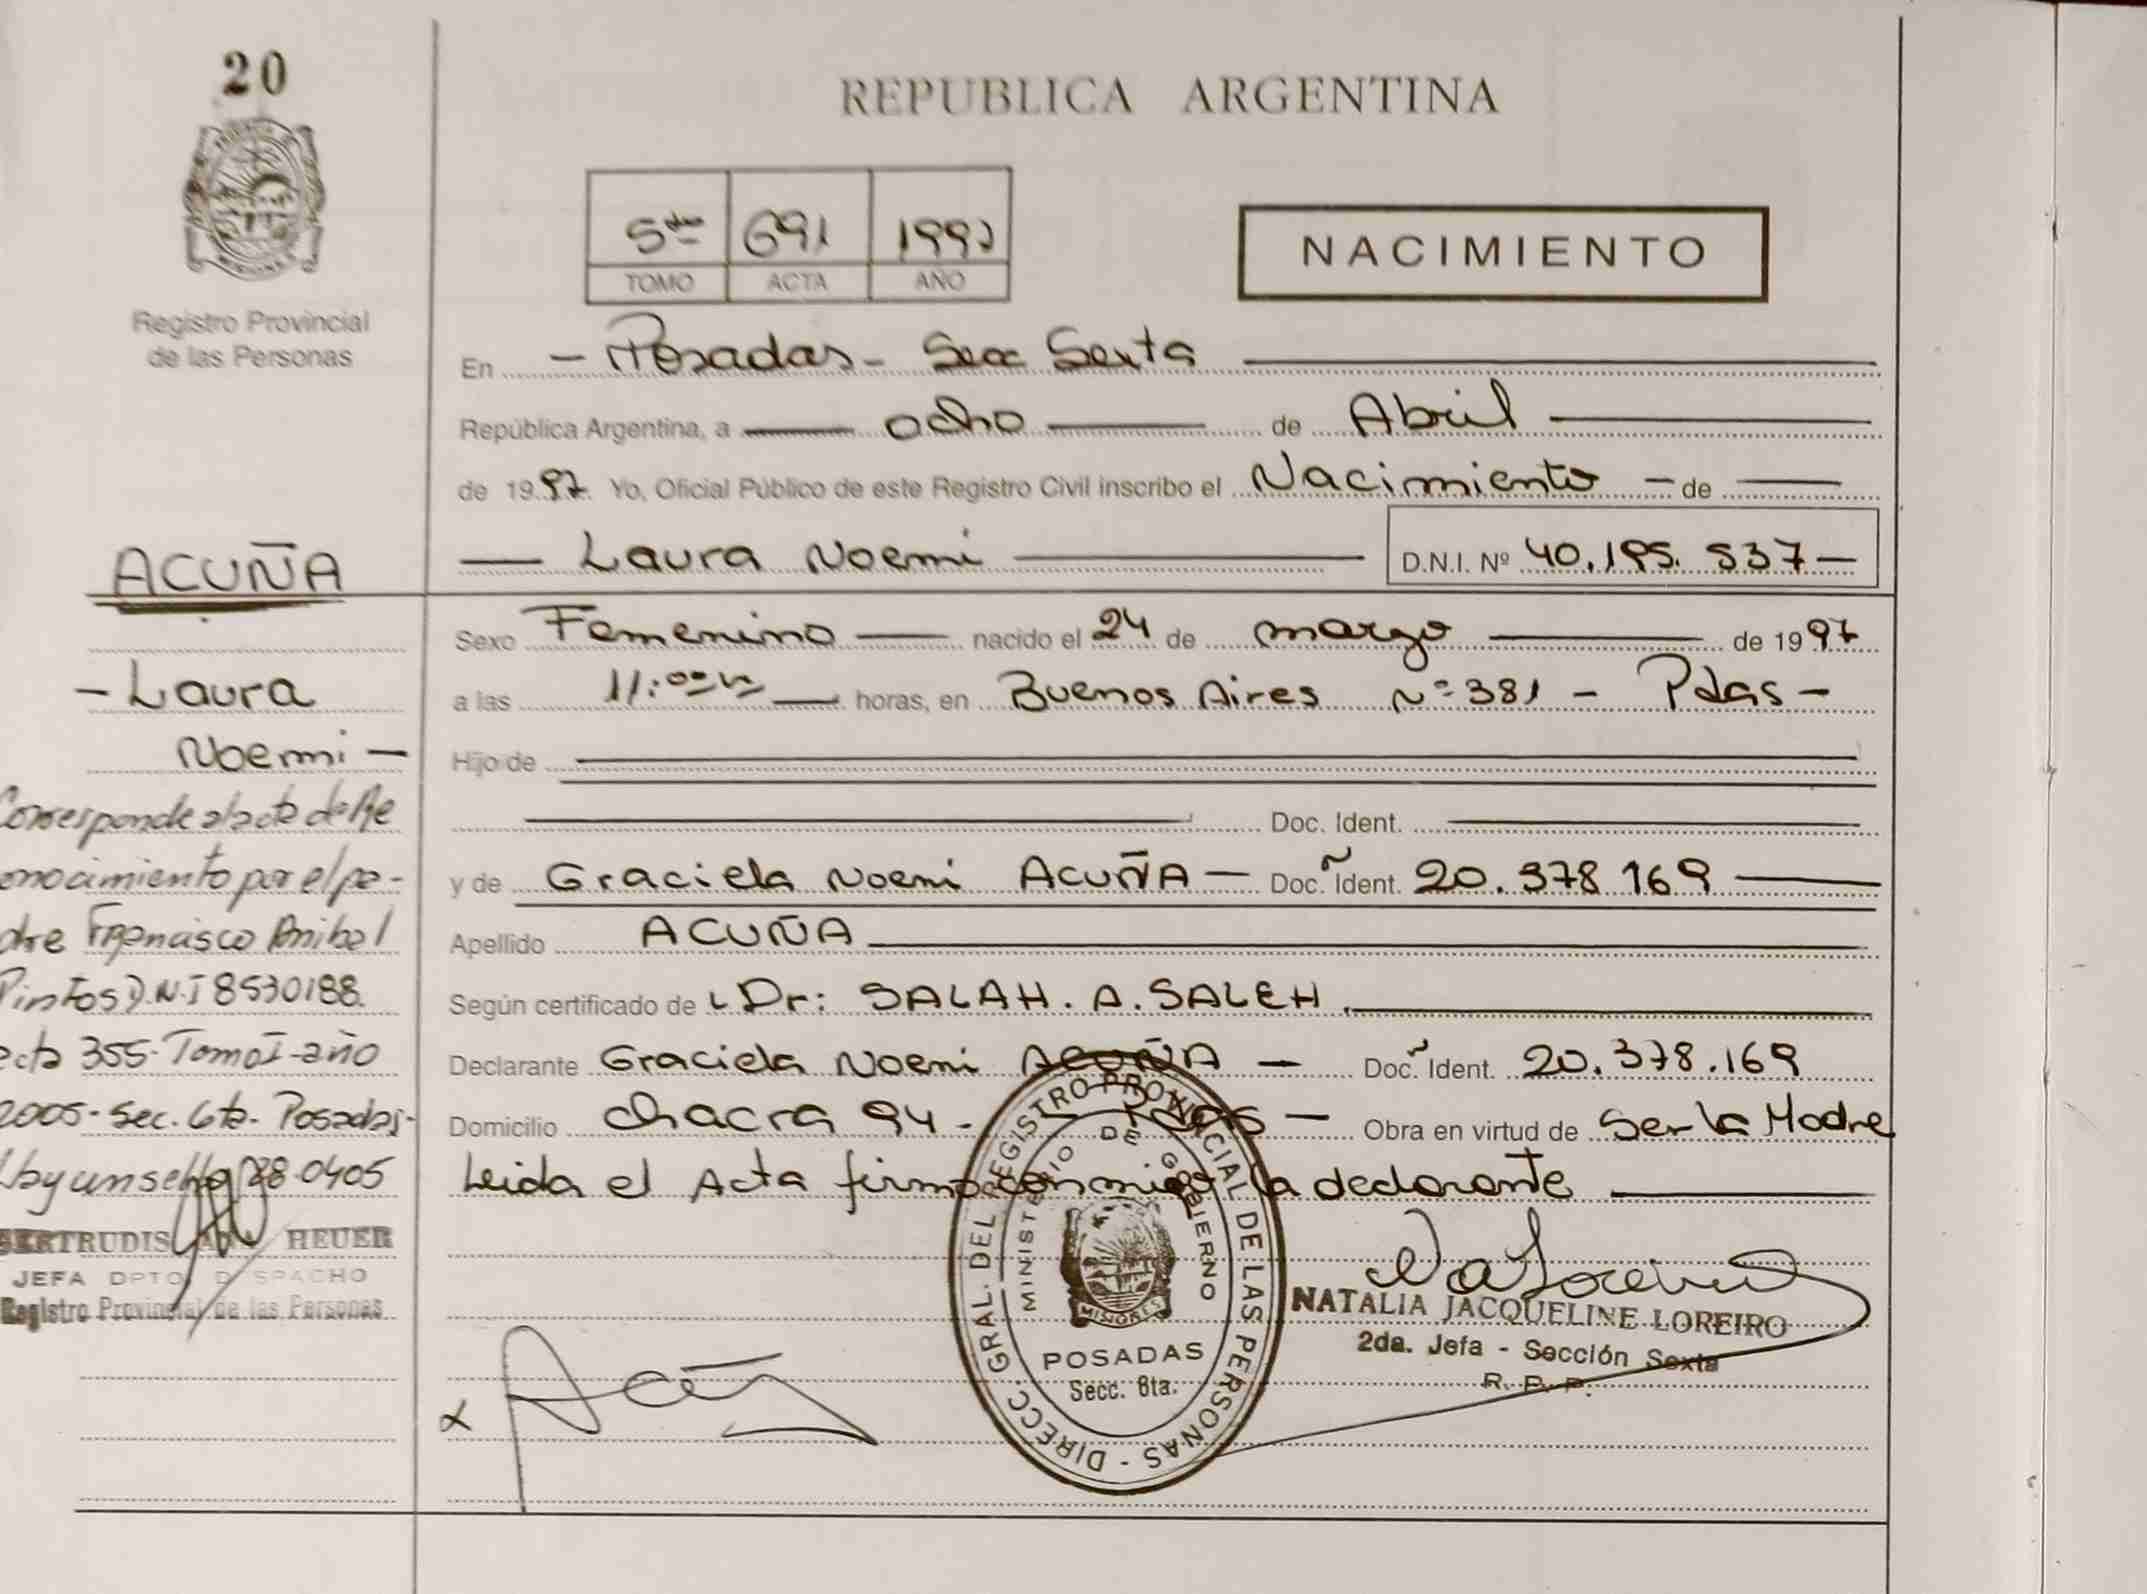 20
REPUBLICA ARGENTINA
5to 691 1997
TOMO ACTA AÑO
NACIMIENTO
Registro Provincial
de las Personas
En - Posadas - Secc Sexta
República Argentina, a ocho de Abril
de 1997. Yo, Oficial Público de este Registro Civil inscribo el Nacimiento - de
Laura Noemi D.N.I. Nº 40.195.537 -
ACUÑA
- Laura
Noemi -
Corresponde al acta de Re
conocimiento por el pa-
dre Francisco Anibal
Pintos D.N.I 8530188.
acta 355. Tomo I - año
2005 - Sec. 6ta. Posadas -
28.0405
GERTRUDIS HEUER
JEFA DPTO DESPACHO
Registro Provincial de las Personas
Sexo Femenino nacido el 24 de marzo de 1997
a las 11:00 horas, en Buenos Aires Nº 381 - Pdas -
Hijo de
Doc. Ident.
y de Graciela Noemi ACUÑA - Doc. Ident. 20.378 169
Apellido ACUÑA
Según certificado de Dr: SALAH. A. SALEH.
Declarante Graciela Noemi ACUÑA - Doc. Ident. 20.378.169
Domicilio chacra 94 - Pdas - Obra en virtud de Ser la Madre
Leida el Acta firma conmigo la declarante
DIRECC. GRAL. DEL REGISTRO PROVINCIAL DE LAS PERSONAS -
MINISTERIO DE GOBIERNO
MISIONES
POSADAS
Secc. 6ta.
NATALIA JACQUELINE LOREIRO
2da. Jefa - Sección Sexta
R. P. P.